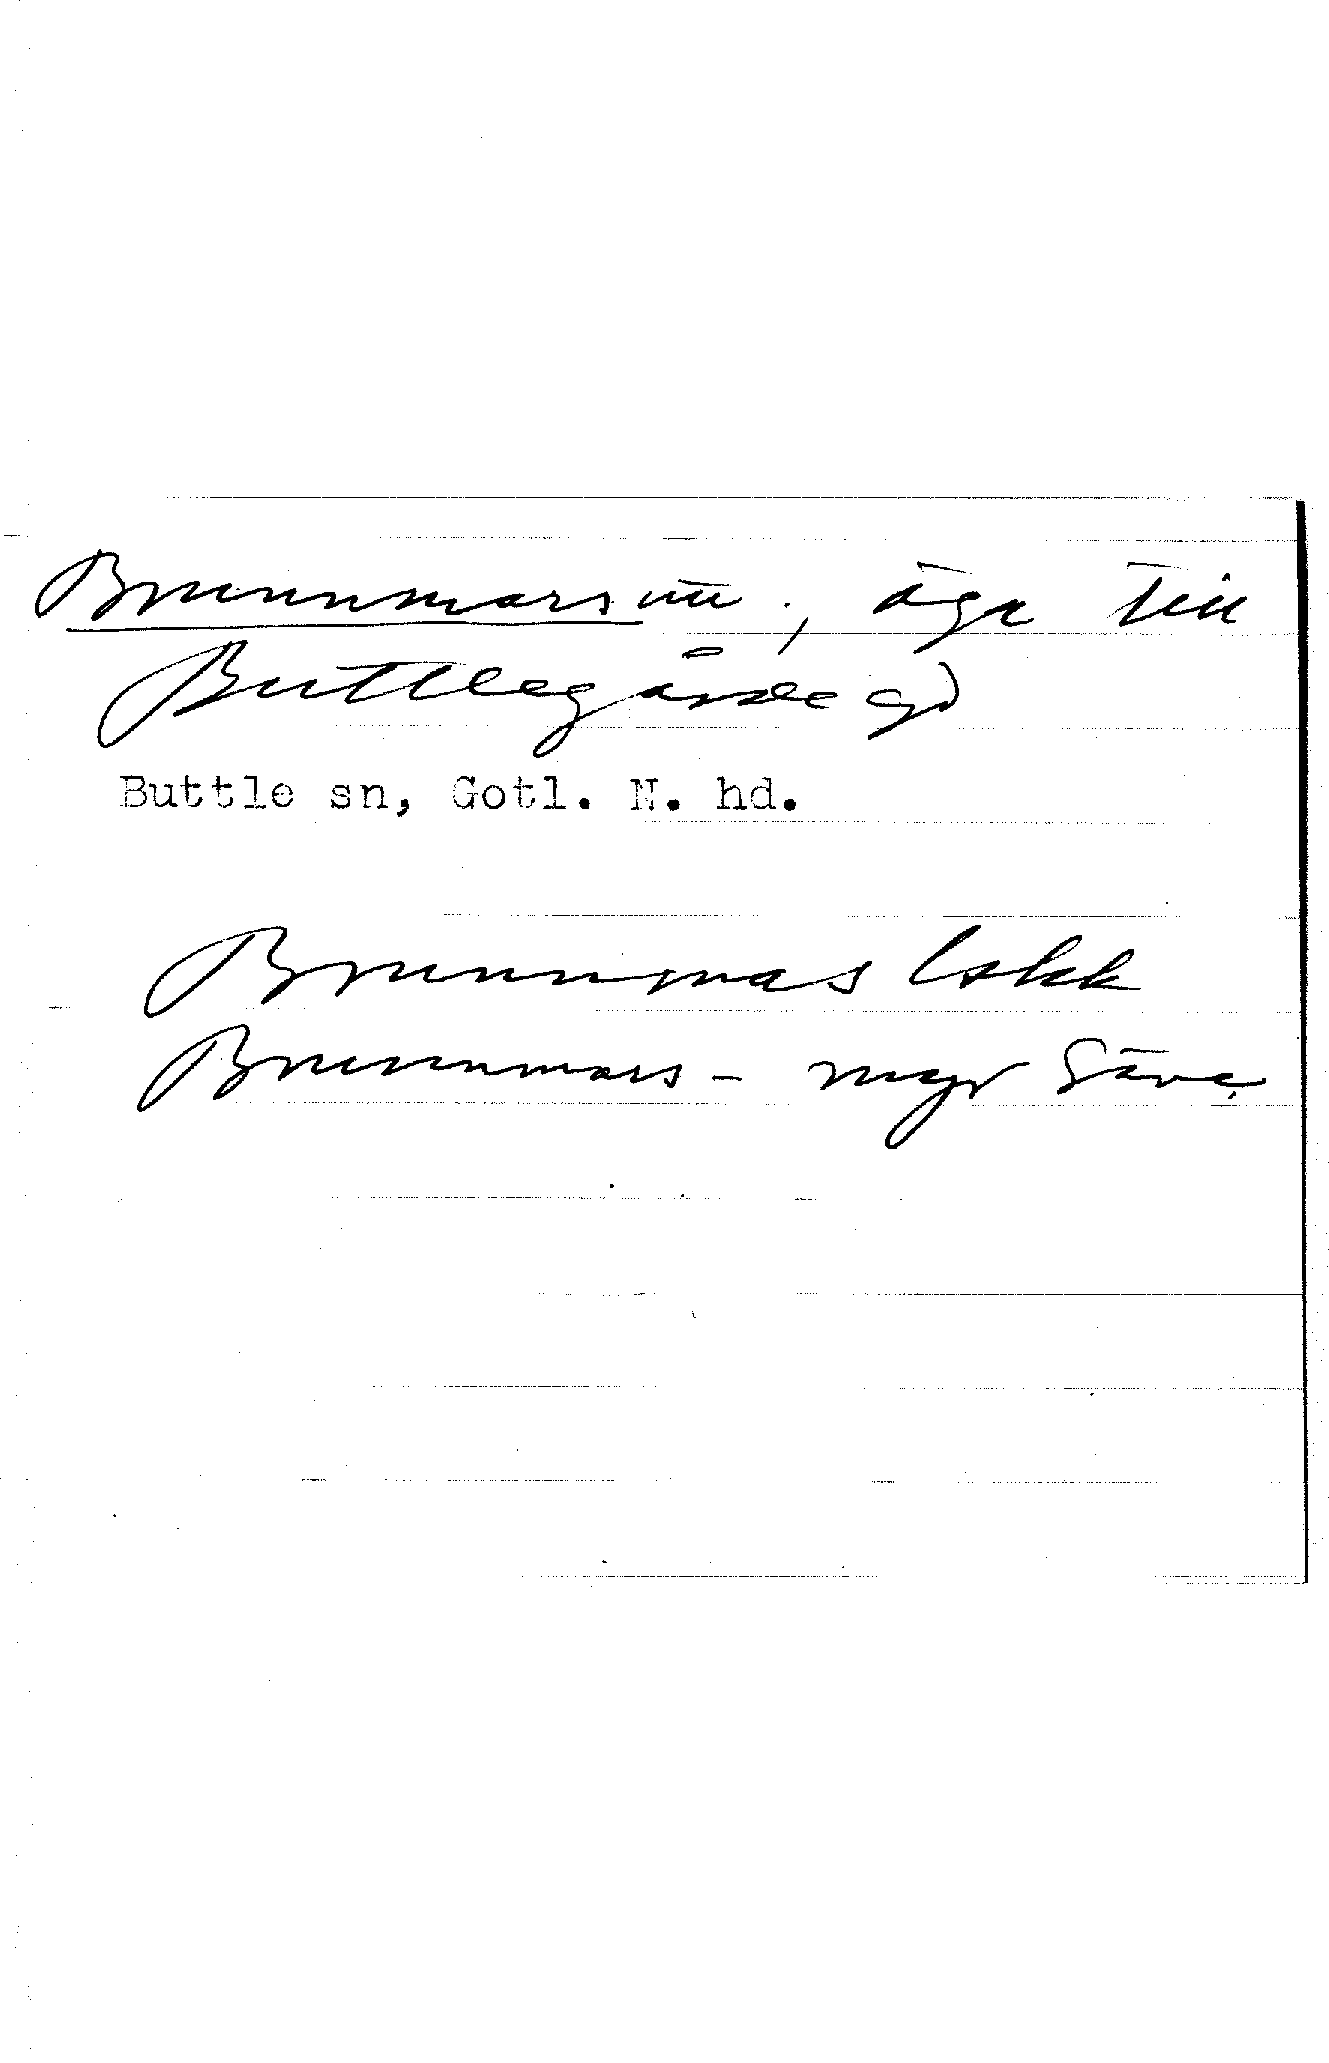 Brunnmarsun., äga till
Buttlegårde gd
Buttle sn, Gotl. N. hd.
Brunnmas
Brunnmars- myr Säve